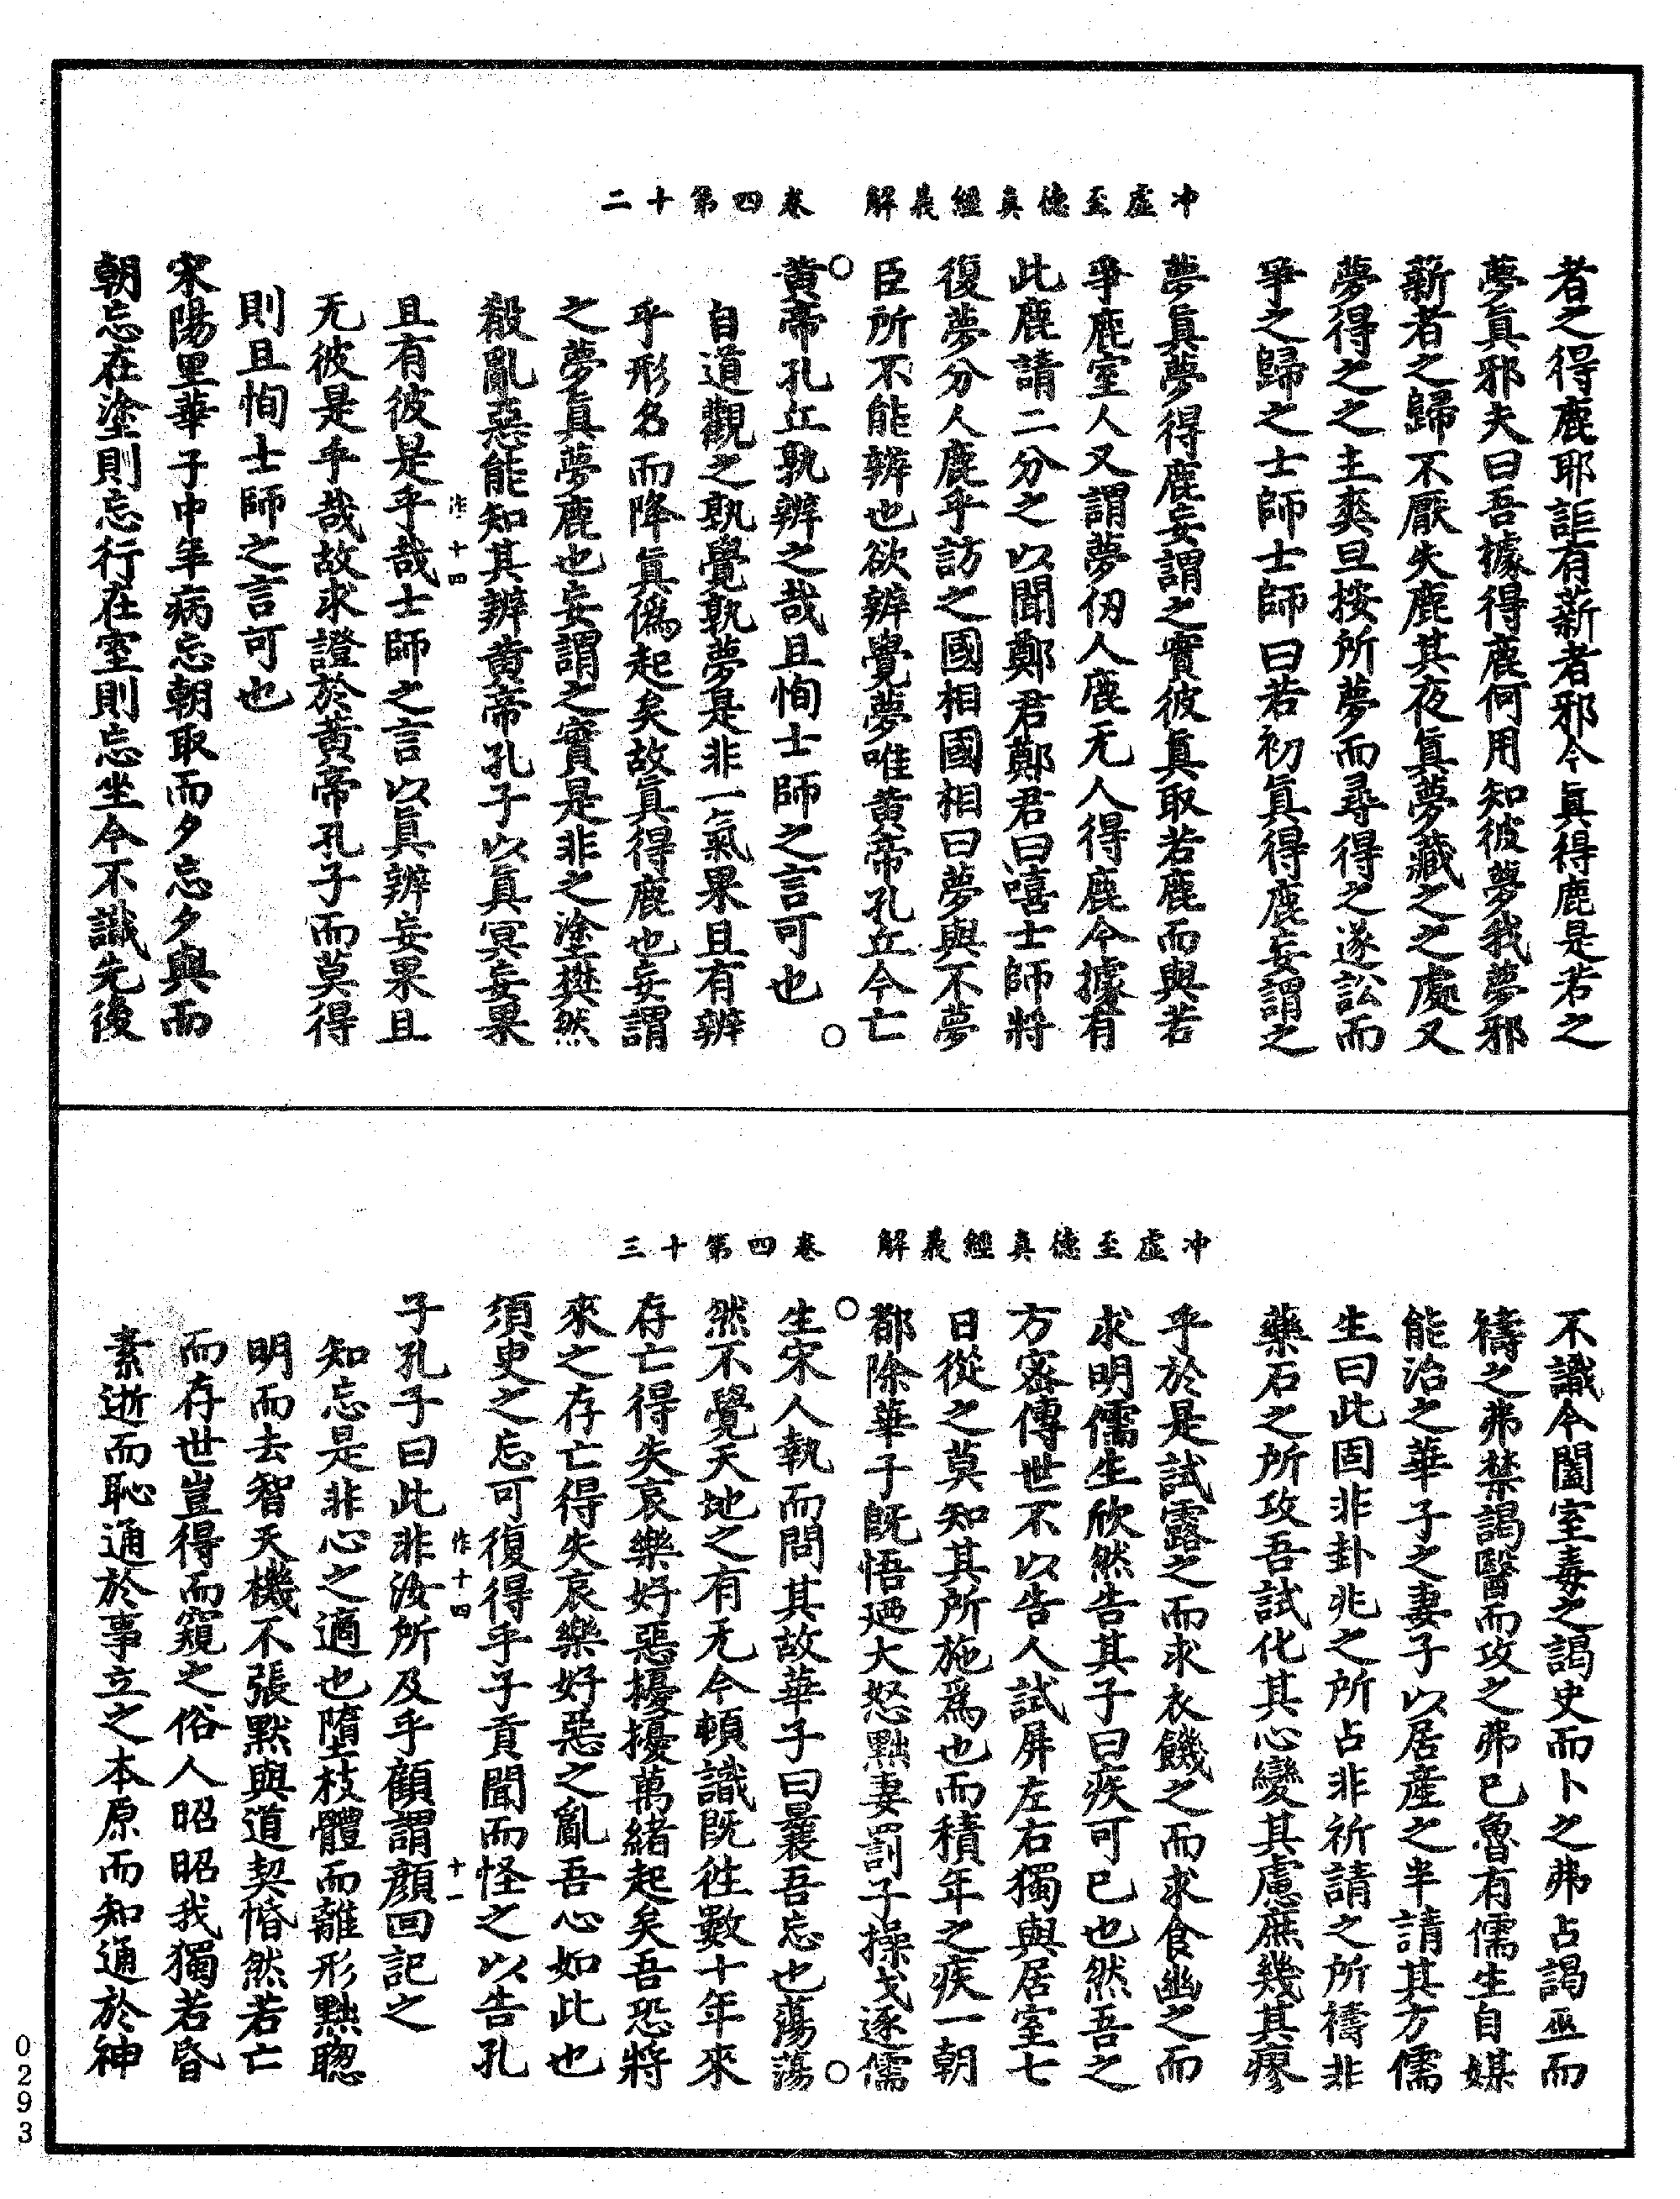 冲虛至德真經義解　卷四第十二
者之得鹿耶詎有薪者邪今真得鹿是若之
夢真邪夫曰吾據得鹿何用知彼夢我夢邪
薪者之歸不厭失鹿其夜真夢藏之之處又
夢得之之主爽旦按所夢而尋得之遂訟而
爭之歸之士師士師曰若初真得鹿妄謂之
夢真夢得鹿妄謂之實彼真取若鹿而與若
爭鹿室人又謂夢仞人鹿无人得鹿今據有
此鹿請二分之以聞鄭君鄭君曰嘻士師將
復夢分人鹿乎訪之國相國相曰夢與不夢
臣所不能辨也欲辨覺夢唯黃帝孔丘今亡
黃帝孔丘孰辨之哉且恂士師之言可也
自道觀之孰覺孰夢是非一氣果且有辨
乎形名而降真偽起矣故真得鹿也妄謂
之夢真夢鹿也妄謂之實是非之塗樊然
殽亂惡能知其辨黃帝孔子以真冥妄果
且有彼是乎哉士師之言以真辨妄果且
作十四
无彼是乎哉故求證於黃帝孔子而莫得
則且恂士師之言可也
宋陽里華子中年病忘朝取而夕忘夕與而
朝忘在塗則忘行在室則忘坐今不識先後
冲虛至德真經義解　卷四第十三
不識今闔室毒之謁史而卜之弗占謁巫而
禱之弗禁謁醫而攻之弗已魯有儒生自媒
能治之華子之妻子以居產之半請其方儒
生曰此固非卦兆之所占非祈請之所禱非
藥石之所攻吾試化其心變其慮庶幾其瘳
乎於是試露之而求衣饑之而求食幽之而
求明儒生欣然告其子曰疾可已也然吾之
方密傳世不以告人試屏左右獨與居室七
日從之莫知其所施為也而積年之疾一朝
都除華子既悟迺大怒黜妻罰子操戈逐儒
生宋人執而問其故華子曰曩吾忘也蕩蕩
然不覺天地之有无今頓識既往數十年來
存亡得失哀樂好惡擾擾萬緒起矣吾恐將
來之存亡得失哀樂好惡之亂吾心如此也
須臾之忘可復得乎子貢聞而怪之以告孔
子孔子曰此非汝所及乎顧謂顏回記之
作十四　十一
知忘是非心之適也墮枝體而離形黜聦
明而去智天機不張默與道契惛然若亡
而存世豈得而窺之俗人昭昭我獨若昏
素逝而恥通於事立之本原而知通於神
0293